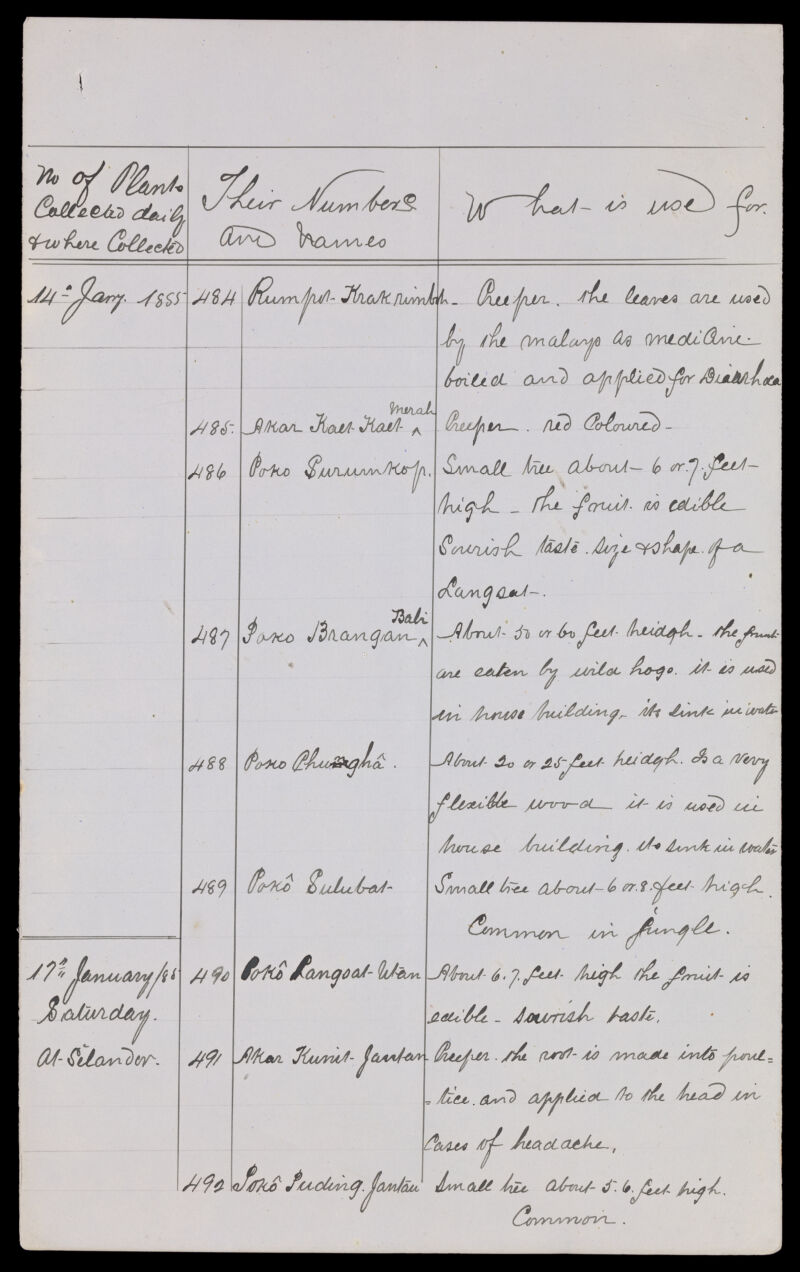 No of Plants
Collected daily
& where Collected
Their Numbers
and Names
What is used for.
14th Jany. 1885
484 Rumpot Krakrimboh - Creeper. the leaves are used
by the malays as medicine.
boiled and applied for Diarrhoea
Merah
485. Akar Kaet Kaet ^ Creeper. red Coloured -
486 Poko Surumkop. Small tree about 6 or 7 feet
high - the fruit is edible
Sourish taste. size & shape of a
Langsat -.
Babi
487 Poko Brangan ^ About 50 or 60 feet heidgh - the fruit
are eaten by wild hogs. it is used
in house building, its sink in water
488 Poko Chunghâ. About 20 or 25 feet heidgh. Is a very
flexible wood it is used in
house building. its sink in water
489 Pokô Sulubat Small tree about 6 or 8 feet high.
Common in Jungle.
17th January/85 490 Pokô Langsat Utan About 6. 7. feet high the fruit is
Saturday. edible - sourish taste.
At Sêlandor. 491 Akar Kunit Jantan Creeper. the root is made into poul=
=tice. and applied to the head in
Cases of headache.
492 Pokô Puding. Jantan Small tree about 5. 6. feet high.
Common.